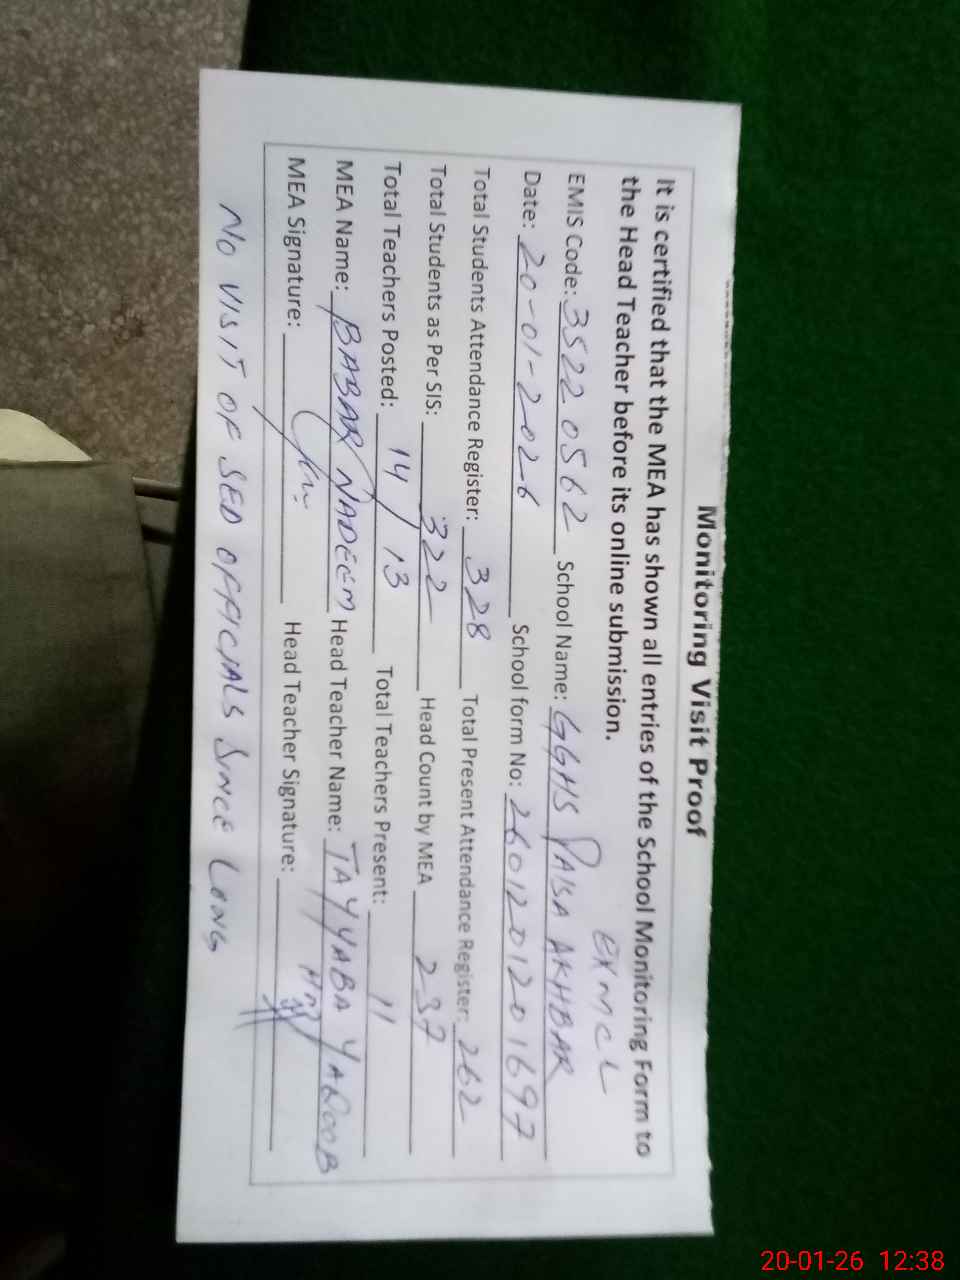 Monitoring Visit Proof
It is certified that the MEA has shown all entries of the School Monitoring Form to
the Head Teacher before its online submission.
EXMCL
EMIS Code: 35220562 School Name: GGHS PAISA AKHBAR
Date: 20-01-2026 School form No: 2601201201697
Total Students Attendance Register: 328 Total Present Attendance Register: 262
Total Students as Per SIS: 322 Head Count by MEA 237
Total Teachers Posted: 14/13 Total Teachers Present: 11
MEA Name: BABAR NADEEM Head Teacher Name: TAYYABA YAQOOB
MEA Signature: Head Teacher Signature:
NO VISIT OF SED OFFICIALS SINCE LONG
20-01-26 12:38